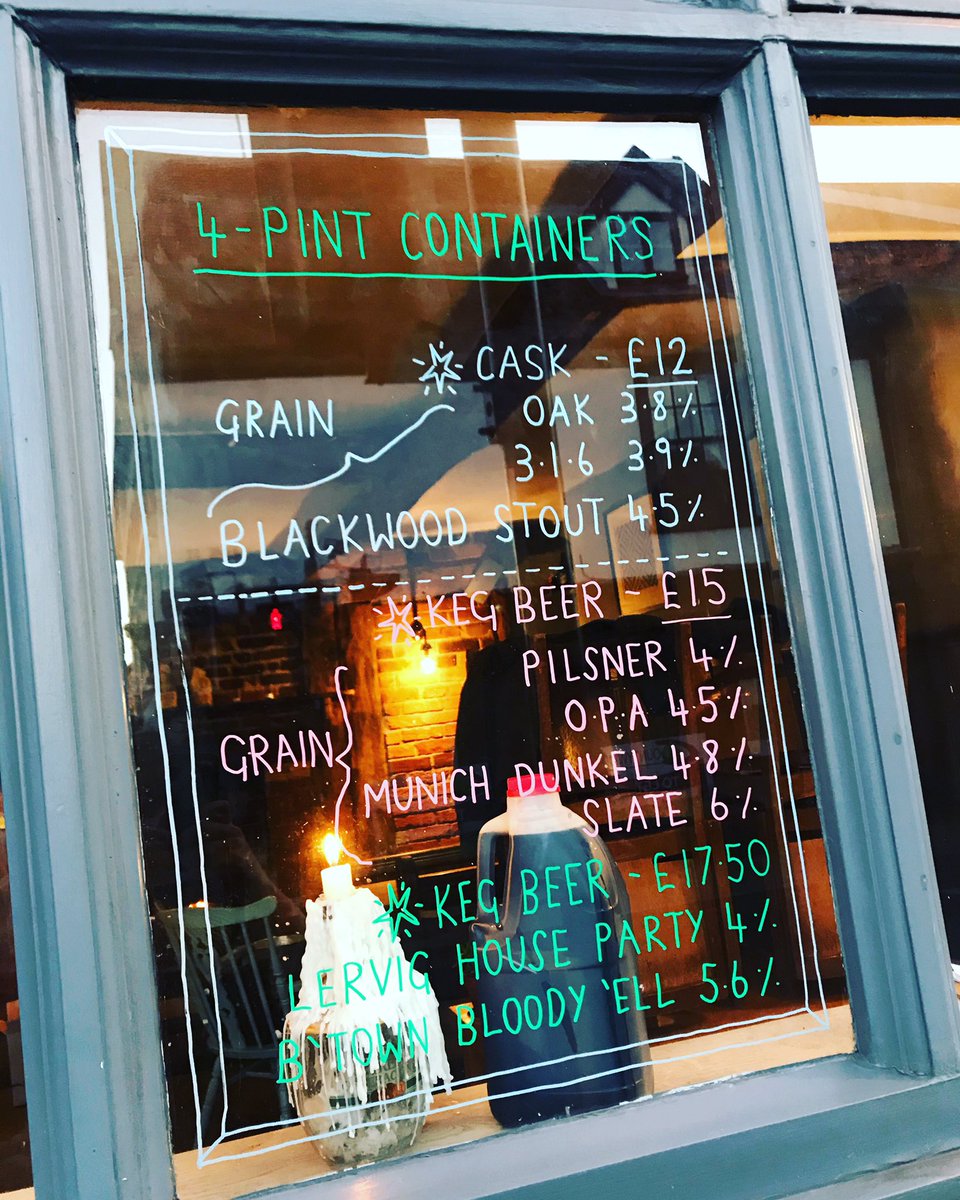 4-PINT CONTAINERS
CASK - £12
GRAIN
OAK 3.8%
3.1.6 3.9%
BLACKWOOD STOUT 4.5%
KEG BEER - £15
PILSNER 4%
O.P.A 4.5%
GRAIN
MUNICH DUNKEL 4.8%
SLATE 6%
KEG BEER - £17.50
LERVIG HOUSE PARTY 4%
B'TOWN BLOODY 'ELL 5.6%